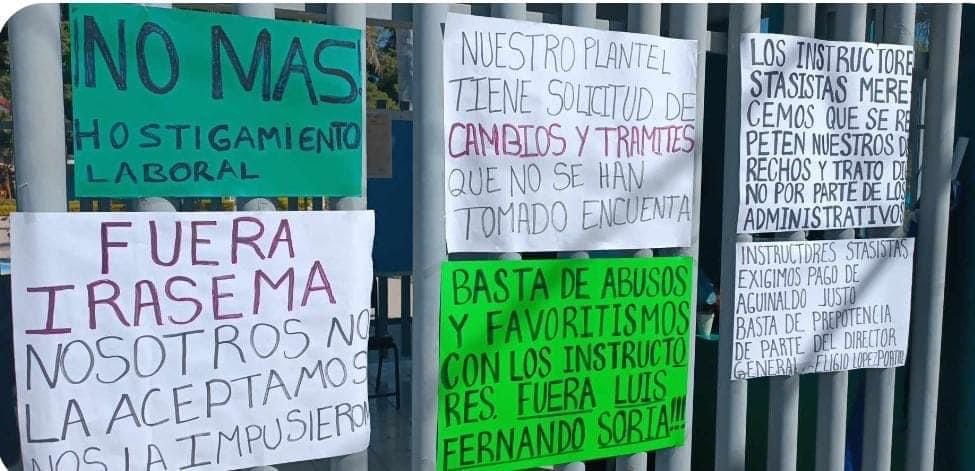 ¡NO MAS!
HOSTIGAMIENTO
LABORAL
FUERA
IRASEMA
NOSOTROS NO
LA ACEPTAMOS
NOS LA IMPUSIERON
NUESTRO PLANTEL
TIENE SOLICITUD DE
CAMBIOS Y TRAMITES
QUE NO SE HAN
TOMADO ENCUENTA
BASTA DE ABUSOS
Y FAVORITISMOS
CON LOS INSTRUCTO
RES. FUERA LUIS
FERNANDO SORIA!!!
LOS INSTRUCTORE
STASISTAS MERE
CEMOS QUE SE RE
PETEN NUESTROS DE
RECHOS Y TRATO DI
NO POR PARTE DE LOS
ADMINISTRATIVOS
INSTRUCTORES STASISTAS
EXIGIMOS PAGO DE
AGUINALDO JUSTO
BASTA DE PREPOTENCIA
DE PARTE DEL DIRECTOR
GENERAL. ELIGIO LOPEZ PORTILLO